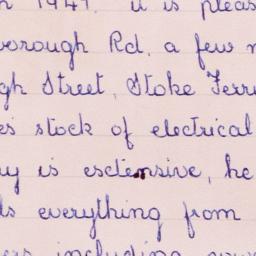 1947. it is pleas
borough Rd. a few
gh Street, Stoke Ferr
es stock of electrical
is esctensive, he
ds everything from
including